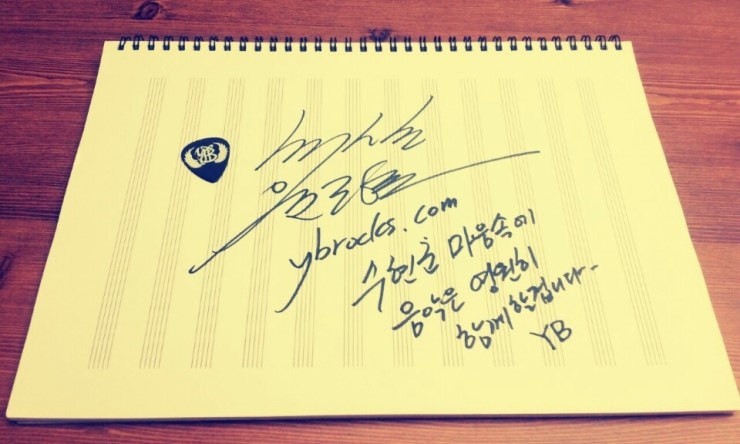 YB
ybrocks.com
수현군 마음속에
음악은 영원히
함께할겁니다-
YB